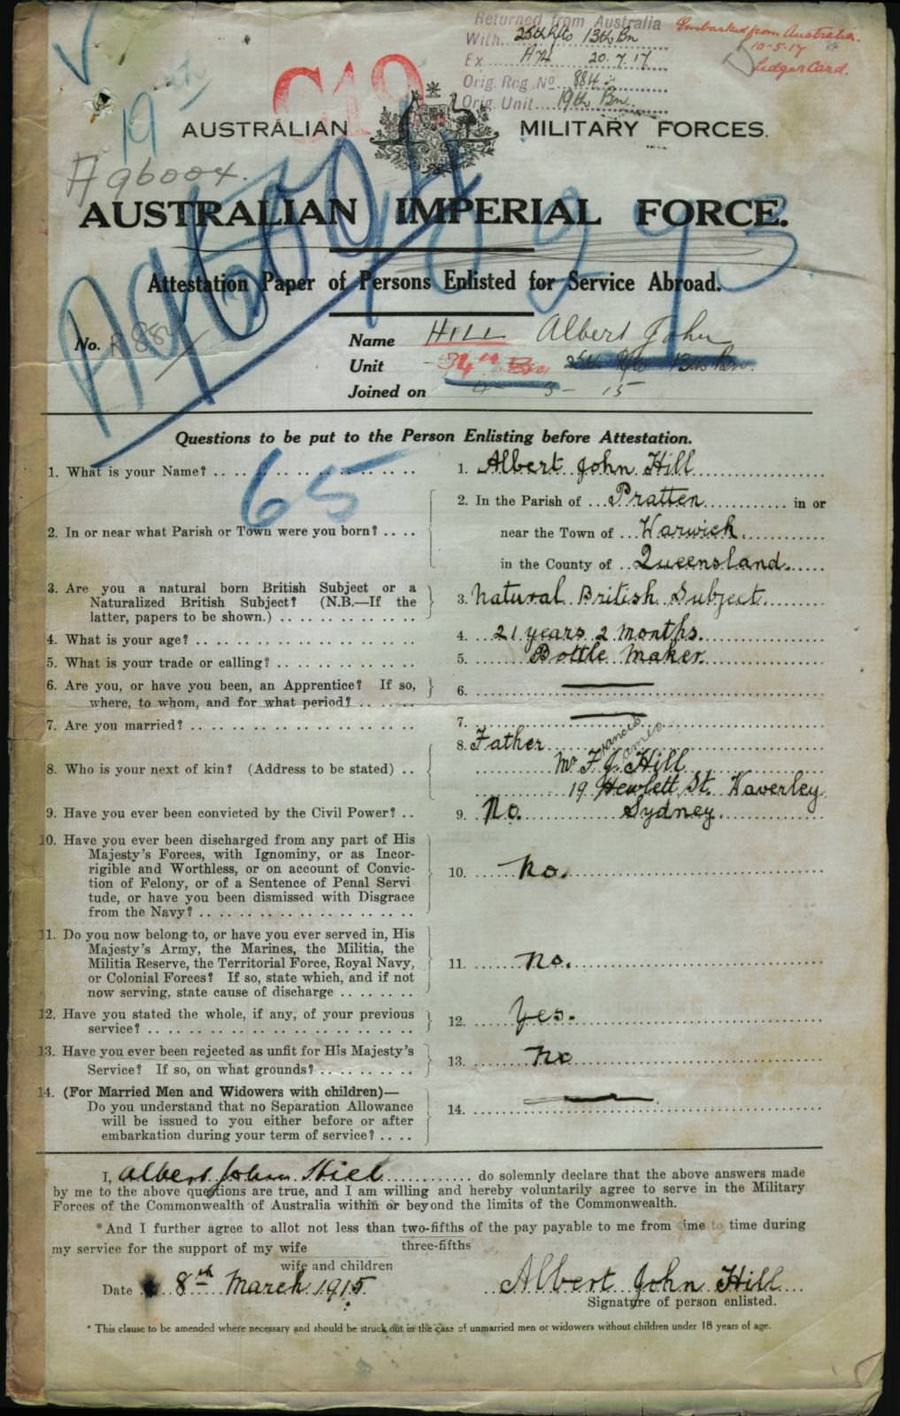 Returned from Australia
With 25th Rfts 13th Bn
Ex A74 20.7.17
Orig. Reg. No. 884
Orig. Unit 19th Bn
Embarked from Australia.
10-5-17
Ledger Card.
C19
19th
AUSTRALIAN MILITARY FORCES.
A96004.
A96004
AUSTRALIAN IMPERIAL FORCE.
Attestation Paper of Persons Enlisted for Service Abroad.
No. R884
Name HILL Albert John
Unit 25th Rfts 13th Bn.
Joined on 15
Questions to be put to the Person Enlisting before Attestation.
65
1. What is your Name? 1. Albert John Hill
2. In or near what Parish or Town were you born? 2. In the Parish of Pratten in or
near the Town of Warwick.
in the County of Queensland.
3. Are you a natural born British Subject or a
Naturalized British Subject? (N.B.—If the
latter, papers to be shown.) 3. Natural British Subject.
4. What is your age? 4. 21 years 2 months.
5. What is your trade or calling? 5. Bottle Maker.
6. Are you, or have you been, an Apprentice? If so,
where, to whom, and for what period? 6. —
7. Are you married? 7. —
8. Who is your next of kin? (Address to be stated) 8. Father
Mr F. J. Hill
Francis James
19 Hewlett St. Waverley
Sydney.
9. Have you ever been convicted by the Civil Power? 9. No.
10. Have you ever been discharged from any part of His
Majesty's Forces, with Ignominy, or as Incor-
rigible and Worthless, or on account of Convic-
tion of Felony, or of a Sentence of Penal Servi
tude, or have you been dismissed with Disgrace
from the Navy? 10. No.
11. Do you now belong to, or have you ever served in, His
Majesty's Army, the Marines, the Militia, the
Militia Reserve, the Territorial Force, Royal Navy,
or Colonial Forces? If so, state which, and if not
now serving, state cause of discharge 11. No.
12. Have you stated the whole, if any, of your previous
service? 12. Yes.
13. Have you ever been rejected as unfit for His Majesty's
Service? If so, on what grounds? 13. No
14. (For Married Men and Widowers with children)—
Do you understand that no Separation Allowance
will be issued to you either before or after
embarkation during your term of service? 14. —
I, Albert John Hill do solemnly declare that the above answers made
by me to the above questions are true, and I am willing and hereby voluntarily agree to serve in the Military
Forces of the Commonwealth of Australia within or beyond the limits of the Commonwealth.
*And I further agree to allot not less than two-fifths of the pay payable to me from time to time during
three-fifths
my service for the support of my wife
wife and children
Date 8th March 1915. Albert John Hill
Signature of person enlisted.
* This clause to be amended where necessary and should be struck out in the case of unmarried men or widowers without children under 18 years of age.